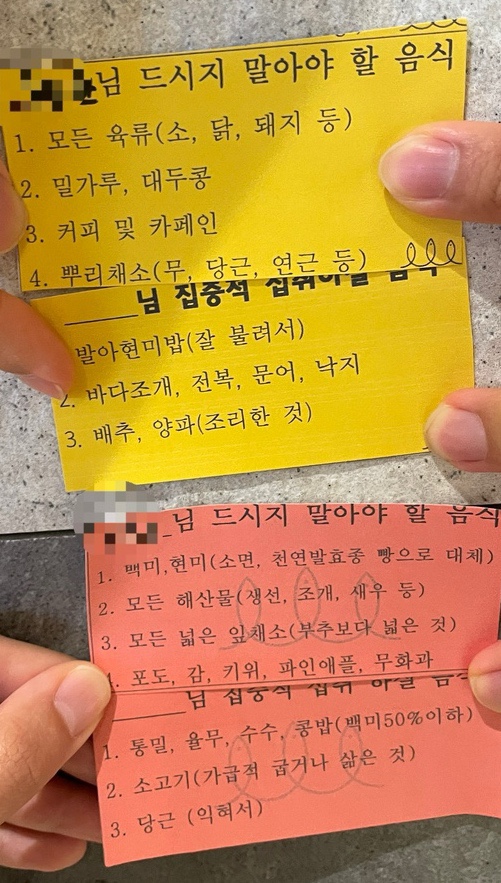 님 드시지 말아야 할 음식
1. 모든 육류(소, 닭, 돼지 등)
2. 밀가루, 대두콩
3. 커피 및 카페인
4. 뿌리채소(무, 당근, 연근 등)
______님 집중적 섭취하실 음식
발아현미밥(잘 불려서)
2. 바다조개, 전복, 문어, 낙지
3. 배추, 양파(조리한 것)
님 드시지 말아야 할 음식
1. 백미,현미(소면, 천연발효종 빵으로 대체)
2. 모든 해산물(생선, 조개, 새우 등)
3. 모든 넓은 잎채소(부추보다 넓은 것)
4. 포도, 감, 키위, 파인애플, 무화과
______님 집중적 섭취 하실 음식
1. 통밀, 율무, 수수, 콩밥(백미50%이하)
2. 소고기(가급적 굽거나 삶은 것)
3. 당근 (익혀서)